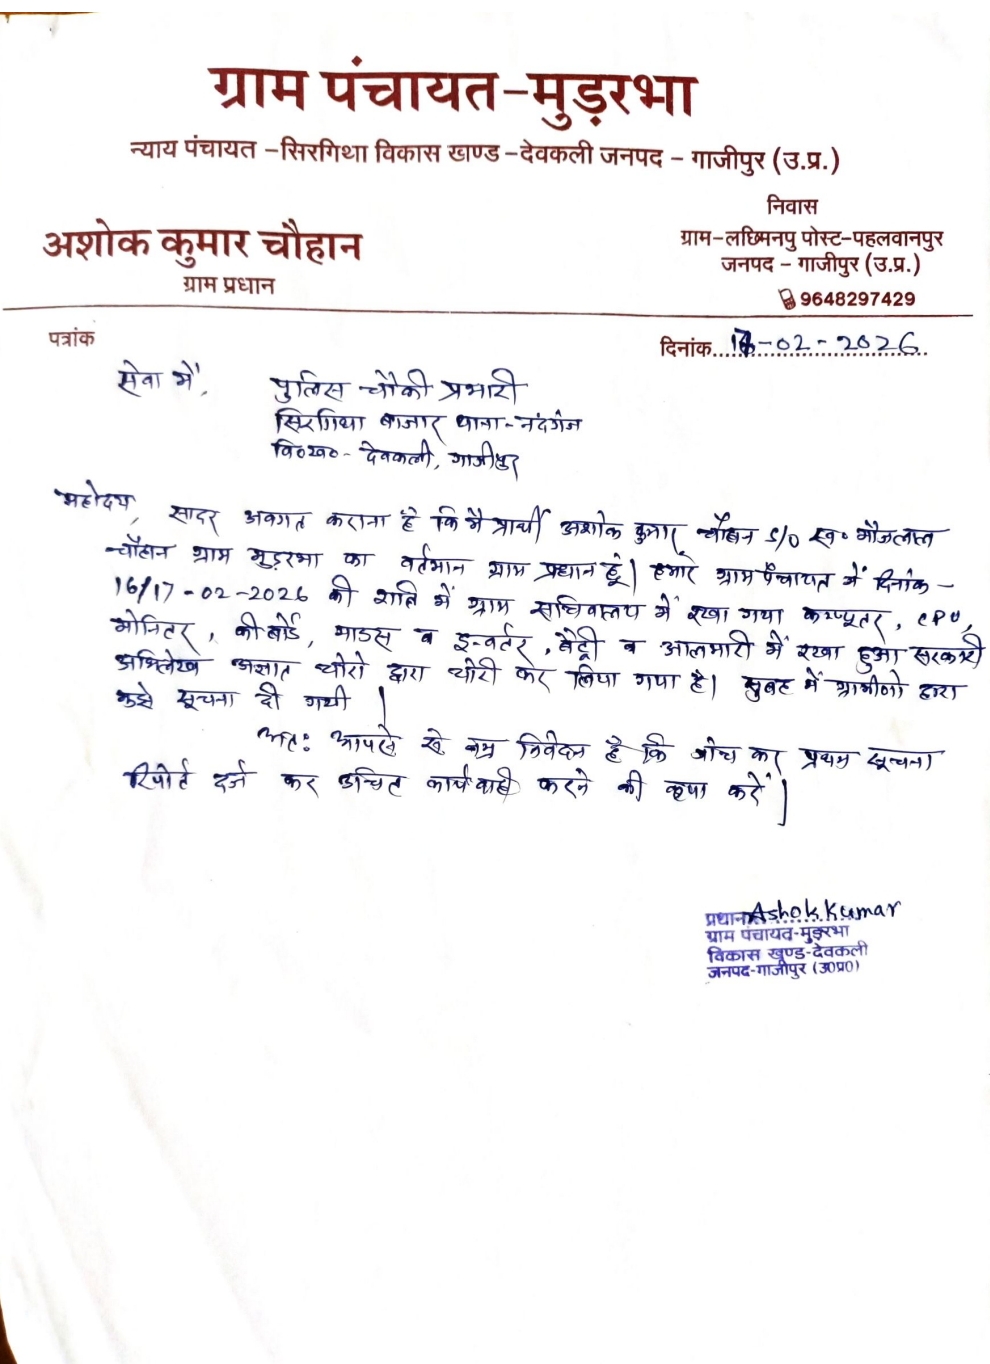 ग्राम पंचायत-मुड़रभा
न्याय पंचायत -सिरगिथा विकास खण्ड -देवकली जनपद - गाजीपुर (उ.प्र.)
अशोक कुमार चौहान
ग्राम प्रधान
निवास
ग्राम-लछिमनपु पोस्ट-पहलवानपुर
जनपद - गाजीपुर (उ.प्र.)
9648297429
पत्रांक
दिनांक 17-02-2026
सेवा में,
पुलिस चौकी प्रभारी
सिरगिथा बाजार थाना-नंदगंज
वि०ख०- देवकली, गाजीपुर
महोदय, सादर अवगत कराना है कि मै प्रार्थी अशोक कुमार चौहान S/O स्व०
चौहान ग्राम मुड़रभा का वर्तमान ग्राम प्रधान हूं| हमारे ग्राम पंचायत में दिनांक-
16/17-02-2026 की रात्रि में ग्राम सचिवालय में रखा गया कम्प्यूटर, CPU,
मोनिटर, की बोर्ड, माउस व इन्वर्टर, बैट्री व आलमारी में रखा हुआ सरकारी
अभिलेख अज्ञात चोरो द्वारा चोरी कर लिया गया है| सुबह में ग्रामीणो द्वारा
मुझे सूचना दी गयी |
अत: आपसे से नम्र निवेदन है कि जांच कर प्रथम सूचना
रिपोर्ट दर्ज कर उचित कार्यवाही करने की कृपा करें|
प्रधान Ashok Kumar
ग्राम पंचायत-मुड़रभा
विकास खण्ड-देवकली
जनपद-गाजीपुर (उ0प्र0)